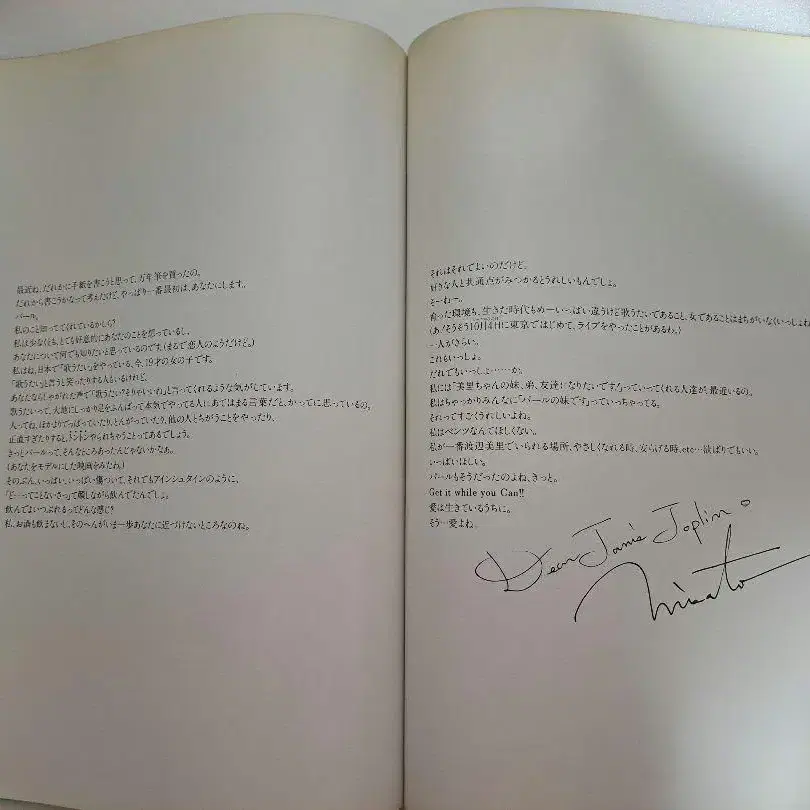 最近ね、だれかに手紙を書こうと思って、万年筆を買ったの。
だれから書こうかなって考えたけど、やっぱり一番最初は、あなたにします。
パール。
私のこと知っててくれているかしら?
私は少なくとも、とても好意的にあなたのことを想っているし、
あなたについて何でも知りたいと思っているのです。(まるで恋人のようだけど。)
私はね、日本で「歌うたい」をやっている、今、19才の女の子です。
「歌うたい」と言うと笑ったりする人もいるけれど、
あなたならしゃがれた声で「歌うたい?そりゃいいわ」と言ってくれるような気がしています。
歌うたいって、大地にしっかり足をふんばって本気でやってる人にあてはまる言葉だと、かってに思っているの。
人ってね、ほかよりでっぱっていたり、とんがっていたり、他の人とちがうことをやったり、
正直すぎたりすると、トントンやられちゃうことってあるでしょう。
きっとパールって、そんなところあったんじゃないかなぁ。
(あなたをモデルにした映画をみたね。)
そのぶん、いっぱい、いっぱい傷ついて、それでもアインシュタインのように、
「どーってことないさ」って顔しながら飲んでたんでしょ。
飲んでよいつぶれるってどんな感じ?
私、お酒も飲まないし、そのへんがいま一歩あなたに近づけないところなのね。
それはそれでよいのだけど。
好きな人と共通点がみつかるとうれしいもんでしょ。
そーねー。
育った環境も、生きた時代もめーいっぱい違うけど歌うたいであること、女であることはまちがいなくいっしょね
(あ!そうそう10月4日に東京ではじめて、ライブをやったことがあるわ。)
一人がきらい。
これもいっしょ。
だれでもいっしょ……か。
私には「美里ちゃんの妹、弟、友達になりたいです」っていってくれる人達が、最近いるの。
私はちゃっかりみんなに「パールの妹です」っていっちゃってる。
それってすごくうれしいよね。
私はベンツなんてほしくない。
私が一番渡辺美里でいられる場所、やさしくなれる時、安らげる時、etc…欲ばりでもいい。
いっぱいほしい。
パールもそうだったのよね、きっと。
Get it while you Can!!
愛は生きているうちに。
そう…愛よね。
Dear Janis Joplin。
Misato